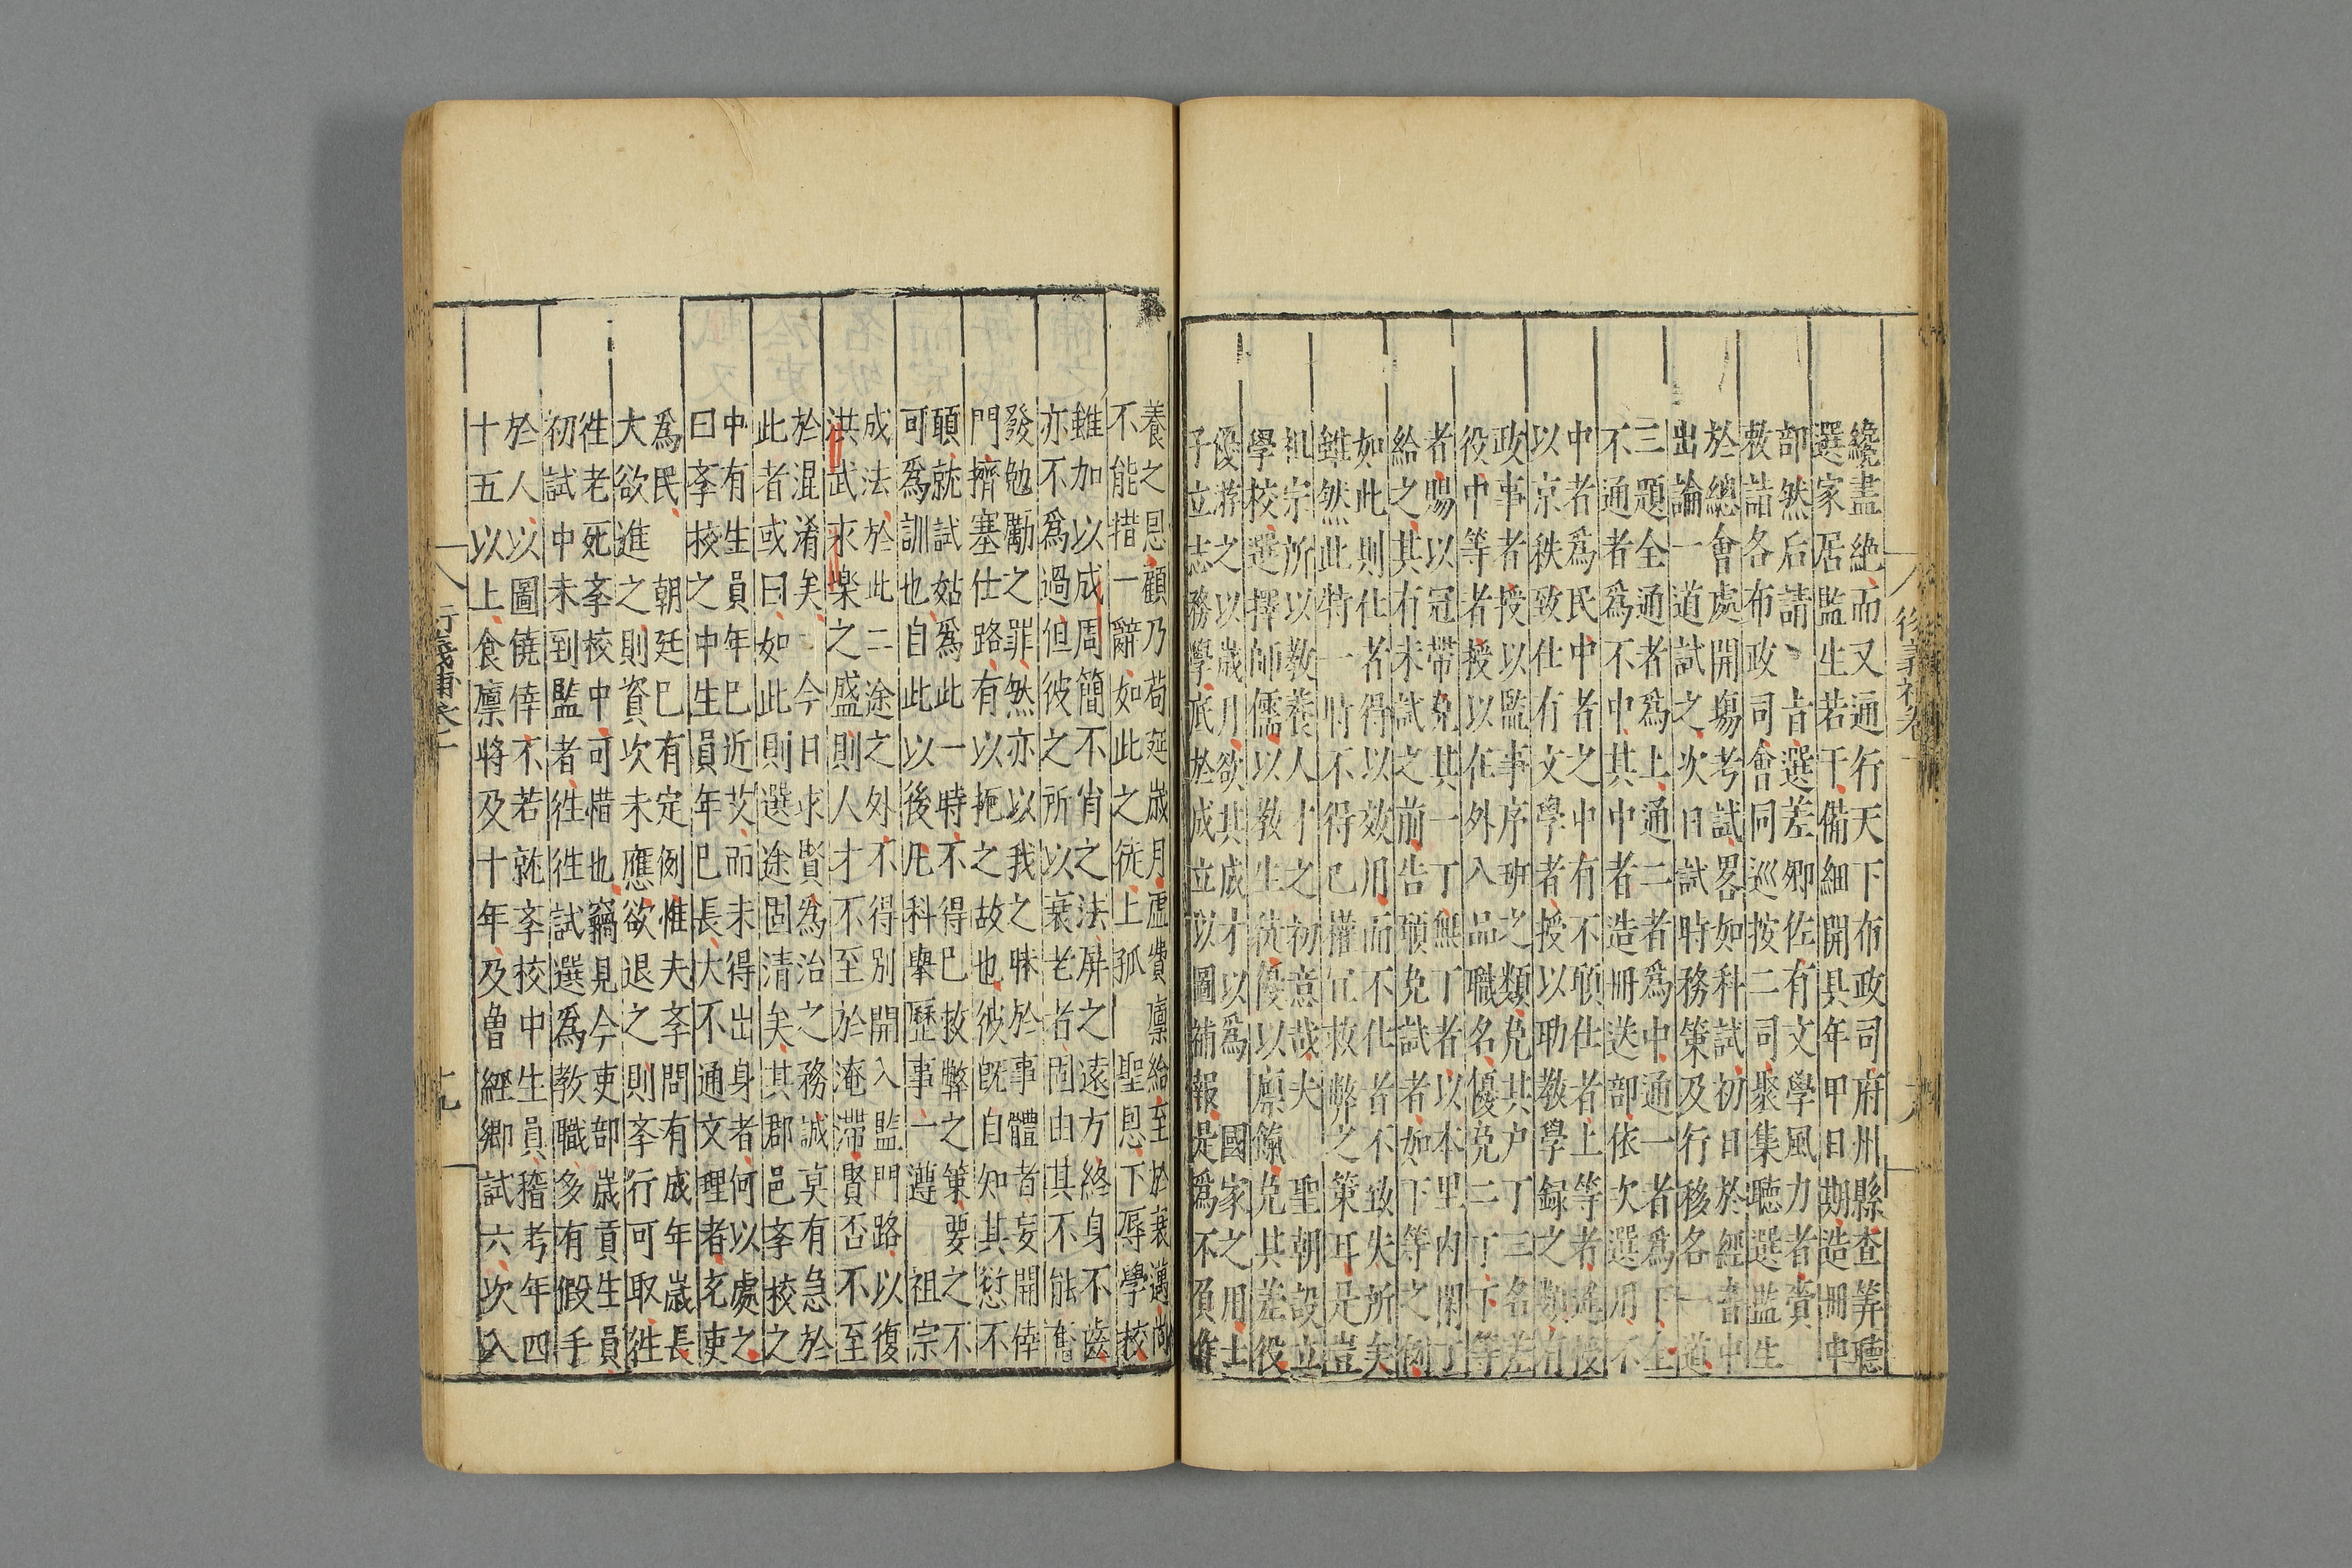 纔盡絶而又通行天下布政司府州縣查筭聽
選家居監生若干備細開具年甲日期造冊申
部然后請 旨選差卿佐有文學風力者賷
敕詣各布政司會同巡按二司聚集聽選監生
於總會處開塲考試畧如科試初日於經書中
出論一道試之次日試時務策及行移各一道
三題全通者爲上通二者爲中通一者爲下全
不通者爲不中其中者造冊送部依次選用不
中者爲民中者之中有不願仕者上等者
以京秩致仕有文學者授以助敎學録之
政事者授以監事序班之類免其户丁三名差
役中等者授以在外入品職名優免二丁下等
者賜以冠帶免其一丁無丁者以本里内閑丁
給之其有未試之前告願免試者如下等之例
如此則仕者得以效用而不仕者不致失所矣
雖然此特一時不得已權宜救弊之策耳是豈
祖宗所以敎養人才之初意哉夫 聖朝設立
學校選擇師儒以敎生徒優以廪餼免其差役
優游之以歲月欲其成才以爲 國家之用士
子立志務學底於成立以圖補報是爲不負
養之恩顧乃苟延歲月虚費廪給至於衰邁
不能措一辭如此之徒上孤 聖恩下辱學校
雖加以成周簡不肖之法屏之遠方終身不齒
亦不爲過但彼之所以衰老者固由其不能奮
發勉勵之罪然亦以我之昧於事體者妄開倖
門擠塞仕路有以扼之故也彼旣自知其愆不
願就試姑爲此一時不得已救弊之策要之不
可爲訓也自此以後凡科舉歷事一遵 祖宗
成法於此二途之外不得别開入監門路以復
洪武永樂之盛則人才不至於淹滯賢否不至
於混淆矣 今日求賢爲治之務誠莫有急於
此者或曰如此則選途固清矣其郡邑斈校之
中有生員年已近艾而未得出身者何以處之
曰斈校之中生員年已長大不通文理者充吏
爲民 朝廷已有定例惟夫斈問有成年歲長
大欲進之則資次未應欲退之則斈行可取徃
徃老死斈校中可惜也竊見今吏部歲貢生員
初試中未到監者徃徃試選爲敎職多有假手
於人以圖僥倖不若就斈校中生員稽考年四
十五以上食廪將及十年及曾經鄉試六次入